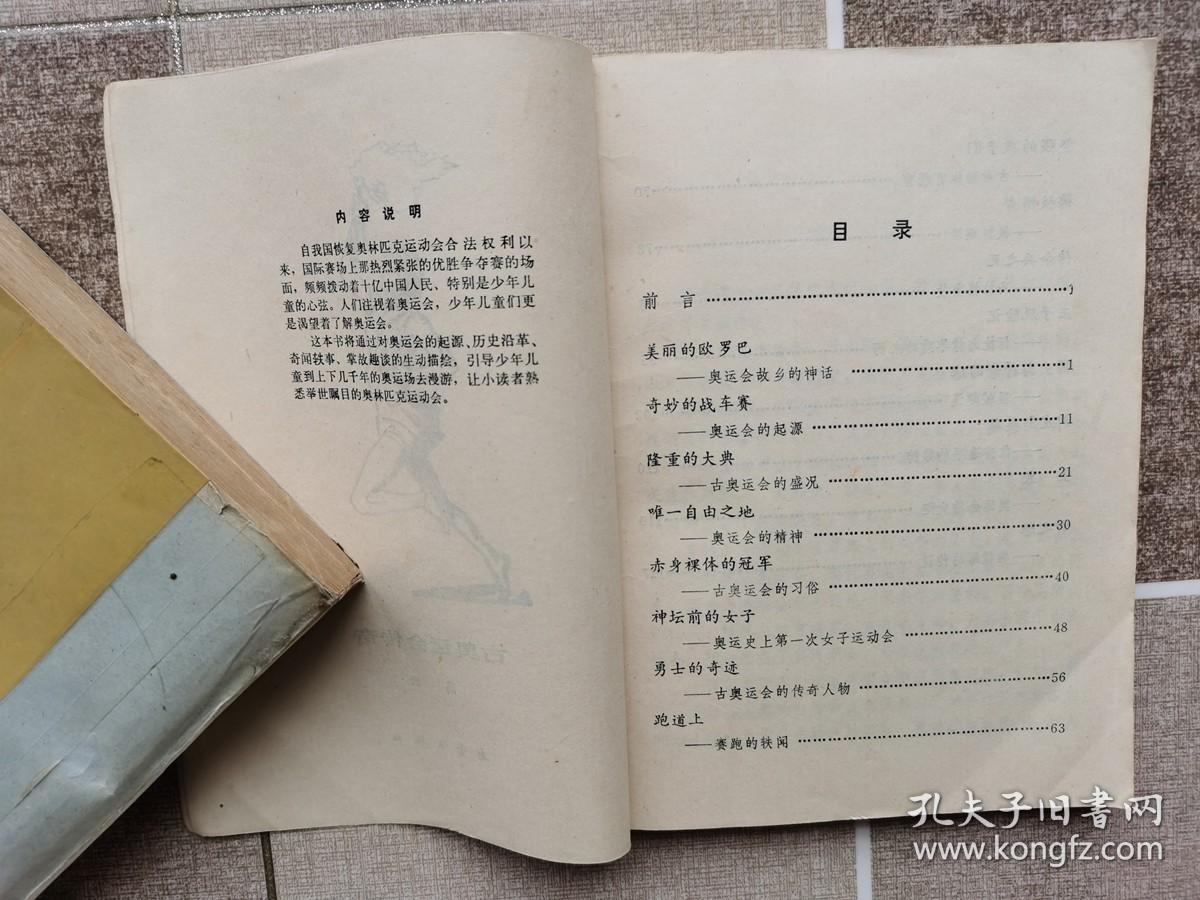 内容说明
自我国恢复奥林匹克运动会合法权利以
来，国际赛场上那热烈紧张的优胜争夺赛的场
面，频频拨动着十亿中国人民、特别是少年儿
童的心弦。人们注视着奥运会，少年儿童们更
是渴望着了解奥运会。
这本书将通过对奥运会的起源、历史沿革、
奇闻轶事、掌故趣谈的生动描绘，引导少年儿
童到上下几千年的奥运场去漫游，让小读者熟
悉举世瞩目的奥林匹克运动会。
目录
前言……………………1
美丽的欧罗巴
——奥运会故乡的神话……………………1
奇妙的战车赛
——奥运会的起源……………………11
隆重的大典
——古奥运会的盛况……………………21
唯一自由之地
——奥运会的精神……………………30
赤身裸体的冠军
——古奥运会的习俗……………………40
神坛前的女子
——奥运史上第一次女子运动会……………………48
勇士的奇迹
——古奥运会的传奇人物……………………56
跑道上
——赛跑的轶闻……………………63
孔夫子旧书网
www.kongfz.com